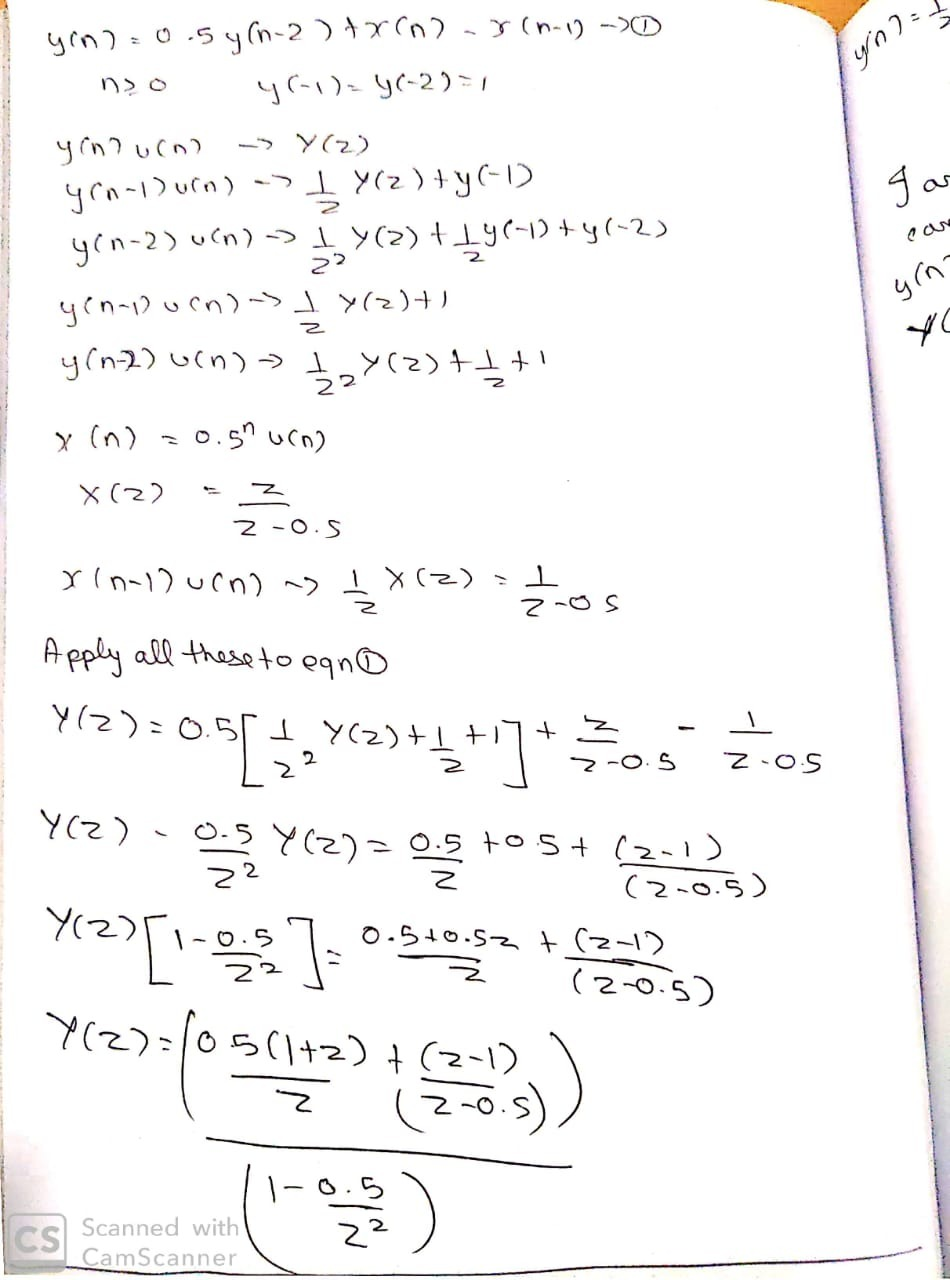 y(n) = 0.5 y(n-2) + x(n) - x(n-1) → ①
n≥0 y(-1) = y(-2) = 1
y(n) u(n) → Y(z)
y(n-1) u(n) → 1/z Y(z) + y(-1)
y(n-2) u(n) → 1/z² Y(z) + 1/z y(-1) + y(-2)
y(n-1) u(n) → 1/z Y(z) + 1
y(n-2) u(n) → 1/z² Y(z) + 1/z + 1
x(n) = 0.5ⁿ u(n)
X(z) = z/(z-0.5)
x(n-1) u(n) → 1/z X(z) = 1/(z-0.5)
Apply all these to eqn ①
Y(z) = 0.5[1/z² Y(z) + 1/z + 1] + z/(z-0.5) - 1/(z-0.5)
Y(z) - 0.5/z² Y(z) = 0.5/z + 0.5 + (z-1)/(z-0.5)
Y(z)[1 - 0.5/z²] = (0.5+0.5z)/z + (z-1)/(z-0.5)
Y(z) = (0.5(1+z)/z + (z-1)/(z-0.5)) / (1 - 0.5/z²)
y(n) =
y(n
CS Scanned with
CamScanner